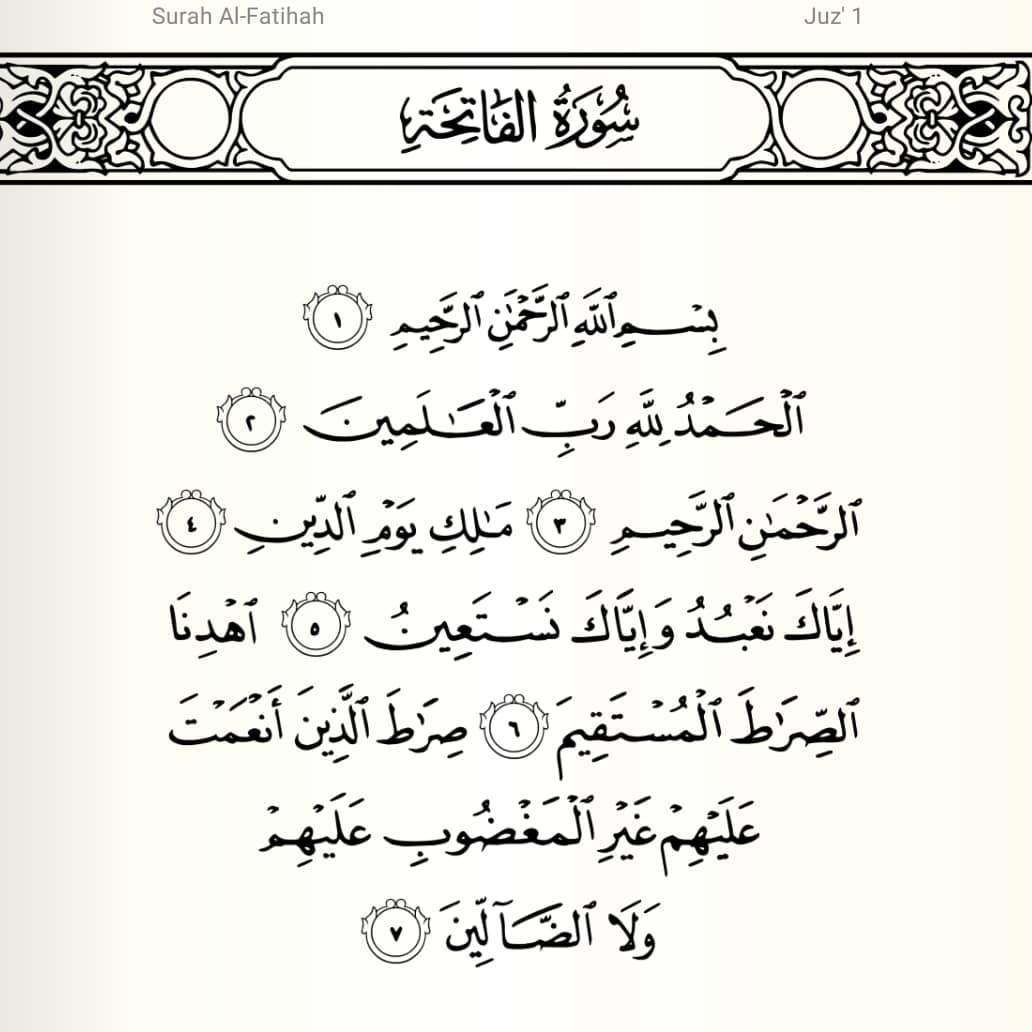 Surah Al-Fatihah Juz' 1
سُورَةُ الفَاتِحَةِ
بِسۡمِ ٱللَّهِ ٱلرَّحۡمَٰنِ ٱلرَّحِيمِ ١
ٱلۡحَمۡدُ لِلَّهِ رَبِّ ٱلۡعَٰلَمِينَ ٢
ٱلرَّحۡمَٰنِ ٱلرَّحِيمِ ٣ مَٰلِكِ يَوۡمِ ٱلدِّينِ ٤
إِيَّاكَ نَعۡبُدُ وَإِيَّاكَ نَسۡتَعِينُ ٥ ٱهۡدِنَا
ٱلصِّرَٰطَ ٱلۡمُسۡتَقِيمَ ٦ صِرَٰطَ ٱلَّذِينَ أَنۡعَمۡتَ
عَلَيۡهِمۡ غَيۡرِ ٱلۡمَغۡضُوبِ عَلَيۡهِمۡ
وَلَا ٱلضَّآلِّينَ ٧